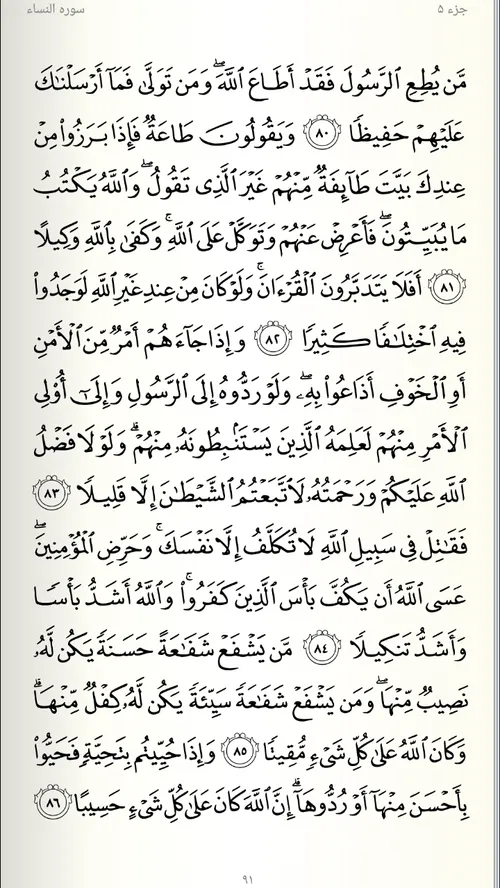 سوره النساء جزء ۵
مَّن يُطِعِ ٱلرَّسُولَ فَقَدْ أَطَاعَ ٱللَّهَۖ وَمَن تَوَلَّىٰ فَمَآ أَرْسَلْنَٰكَ
عَلَيْهِمْ حَفِيظًا ۝٨٠ وَيَقُولُونَ طَاعَةٌ فَإِذَا بَرَزُوا۟ مِنْ
عِندِكَ بَيَّتَ طَآئِفَةٌ مِّنْهُمْ غَيْرَ ٱلَّذِى تَقُولُۖ وَٱللَّهُ يَكْتُبُ
مَا يُبَيِّتُونَۖ فَأَعْرِضْ عَنْهُمْ وَتَوَكَّلْ عَلَى ٱللَّهِۚ وَكَفَىٰ بِٱللَّهِ وَكِيلًا
۝٨١ أَفَلَا يَتَدَبَّرُونَ ٱلْقُرْءَانَۚ وَلَوْ كَانَ مِنْ عِندِ غَيْرِ ٱللَّهِ لَوَجَدُوا۟
فِيهِ ٱخْتِلَٰفًا كَثِيرًا ۝٨٢ وَإِذَا جَآءَهُمْ أَمْرٌ مِّنَ ٱلْأَمْنِ
أَوِ ٱلْخَوْفِ أَذَاعُوا۟ بِهِۦۖ وَلَوْ رَدُّوهُ إِلَى ٱلرَّسُولِ وَإِلَىٰٓ أُو۟لِى
ٱلْأَمْرِ مِنْهُمْ لَعَلِمَهُ ٱلَّذِينَ يَسْتَنۢبِطُونَهُۥ مِنْهُمْۗ وَلَوْلَا فَضْلُ
ٱللَّهِ عَلَيْكُمْ وَرَحْمَتُهُۥ لَٱتَّبَعْتُمُ ٱلشَّيْطَٰنَ إِلَّا قَلِيلًا ۝٨٣
فَقَٰتِلْ فِى سَبِيلِ ٱللَّهِ لَا تُكَلَّفُ إِلَّا نَفْسَكَۚ وَحَرِّضِ ٱلْمُؤْمِنِينَۖ
عَسَى ٱللَّهُ أَن يَكُفَّ بَأْسَ ٱلَّذِينَ كَفَرُوا۟ۚ وَٱللَّهُ أَشَدُّ بَأْسًا
وَأَشَدُّ تَنكِيلًا ۝٨٤ مَّن يَشْفَعْ شَفَٰعَةً حَسَنَةً يَكُن لَّهُۥ
نَصِيبٌ مِّنْهَاۖ وَمَن يَشْفَعْ شَفَٰعَةً سَيِّئَةً يَكُن لَّهُۥ كِفْلٌ مِّنْهَاۗ
وَكَانَ ٱللَّهُ عَلَىٰ كُلِّ شَىْءٍ مُّقِيتًا ۝٨٥ وَإِذَا حُيِّيتُم بِتَحِيَّةٍ فَحَيُّوا۟
بِأَحْسَنَ مِنْهَآ أَوْ رُدُّوهَآۗ إِنَّ ٱللَّهَ كَانَ عَلَىٰ كُلِّ شَىْءٍ حَسِيبًا ۝٨٦
٩١